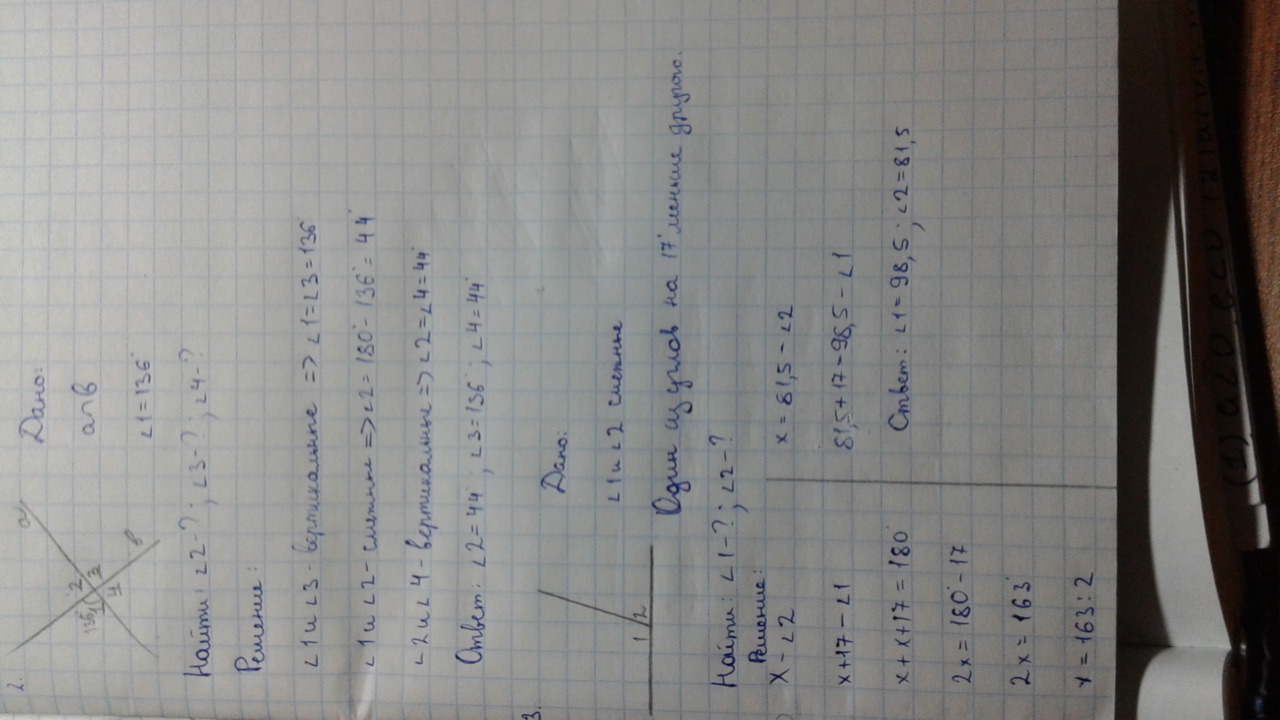 2.
Дано:
a∩b
a
b
136
1
2
3
4
∠1=136°
Найти: ∠2-?; ∠3-?; ∠4-?
Решение:
∠1 и ∠3 - вертикальные => ∠1=∠3=136°
∠1 и ∠2 - смежные => ∠2=180°-136°=44°
∠2 и ∠4 - вертикальные => ∠2=∠4=44°
Ответ: ∠2=44°; ∠3=136°; ∠4=44°
3.
Дано:
1
2
∠1 и ∠2 смежные
Один из углов на 17° меньше другого.
Найти: ∠1-?; ∠2-?
Решение:
x - ∠2
x+17 - ∠1
x+x+17=180°
2x=180°-17
2x=163°
x=163:2
x=81,5 - ∠2
81,5+17=98,5 - ∠1
Ответ: ∠1=98,5; ∠2=81,5